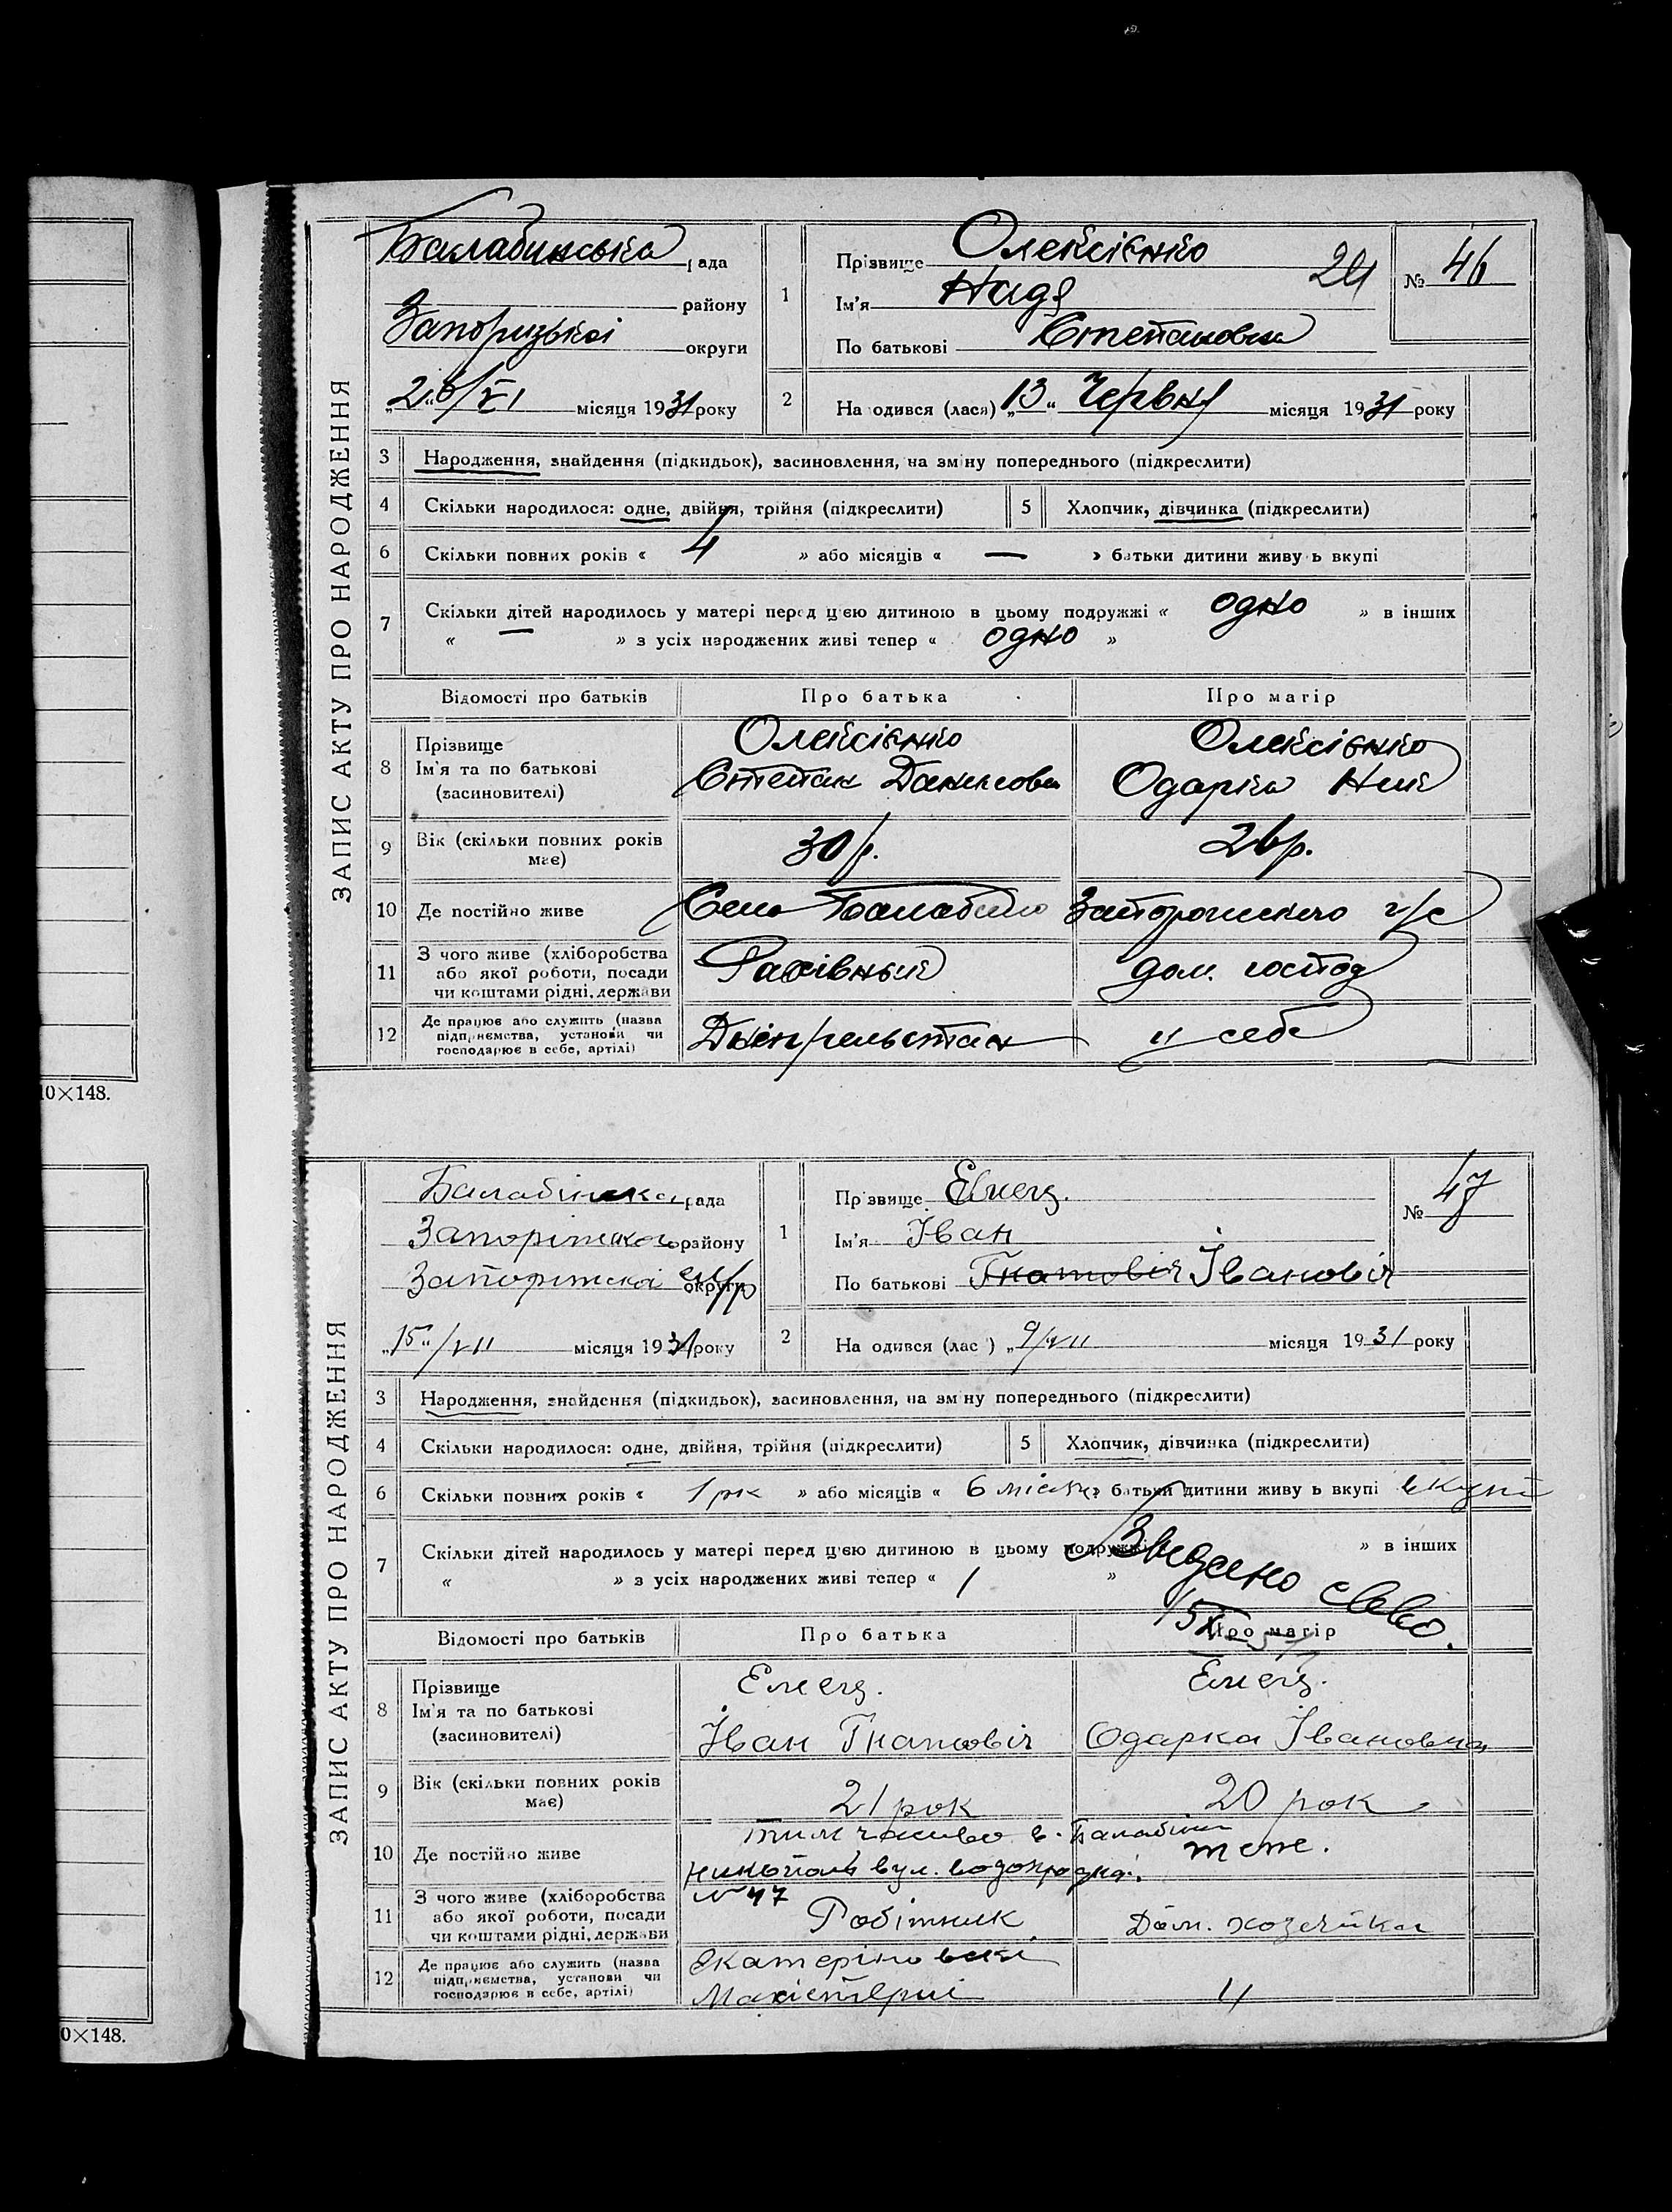 ЗАПИС АКТУ ПРО НАРОДЖЕННЯ
Балабинська рада
району
Запоризької округи
„26“/VI місяця 1931 року
1
Прізвище Олексієнко
Ім'я Надя
По батькові Степановна
24
№ 46
2
На одився (лася) „13“ Червня місяця 1931 року
3 Народження, знайдення (підкидьок), засиновлення, на зм ну попереднього (підкреслити)
4 Скільки народилося: одне, двійня, трійня (підкреслити) 5 Хлопчик, дівчинка (підкреслити)
6 Скільки повних років « 4 » або місяців « — » батьки дитини живу ь вкупі
7 Скільки дітей народилось у матері перед цією дитиною в цьому подружжі « одно » в інших
« — » з усіх народжених живі тепер « одно »
Відомості про батьків Про батька Про матір
8 Прізвище Олексієнко Олексієнко
Ім'я та по батькові Степан Данилов Одарка
(засиновителі)
9 Вік (скільки повних років має) 30 р. 26 р.
10 Де постійно живе Село Балабино Запорожского г/с
11 З чого живе (хліборобства або якої роботи, посади чи коштами рідні, держави дом. господ
12 Де працює або служить (назва підприємства, установи чи господарює в себе, артілі) у себе
10×148.
ЗАПИС АКТУ ПРО НАРОДЖЕННЯ
Балабінська рада
району
округи
„15“/VII місяця 1931 року
1
Пр звище Емец.
Ім'я Іван
По батькові Гнатовіч Івановіч
№ 47
2
На одився (лас ) „9/VII місяця 1931 року
3 Народження, знайдення (підкидьок), засиновлення, на зм ну попереднього (підкреслити)
4 Скільки народилося: одне, двійня, трійня (підкреслити) 5 Хлопчик, дівчинка (підкреслити)
6 Скільки повних років « 1 рк » або місяців « 6 місяц » батьки дитини живу ь вкупі вкупі
7 Скільки дітей народилось у матері перед цією дитиною в цьому подружжі » в інших
« » з усіх народжених живі тепер « 1 »
Видано
Відомості про батьків Про батька Про матір
8 Прізвище Емец. Емец.
Ім'я та по батькові Іван Гнатовіч Одарка Івановна
(засиновителі)
9 Вік (скільки повних років має) 21 рок 20 рок
10 Де постійно живе тимчасово в. Балабіни теж.
Никополь вул.
№ 47
11 З чого живе (хліборобства або якої роботи, посади чи коштами рідні, держави Робітник Дом. хозейка
12 Де працює або служить (назва підприємства, установи чи господарює в себе, артілі)
0×148.